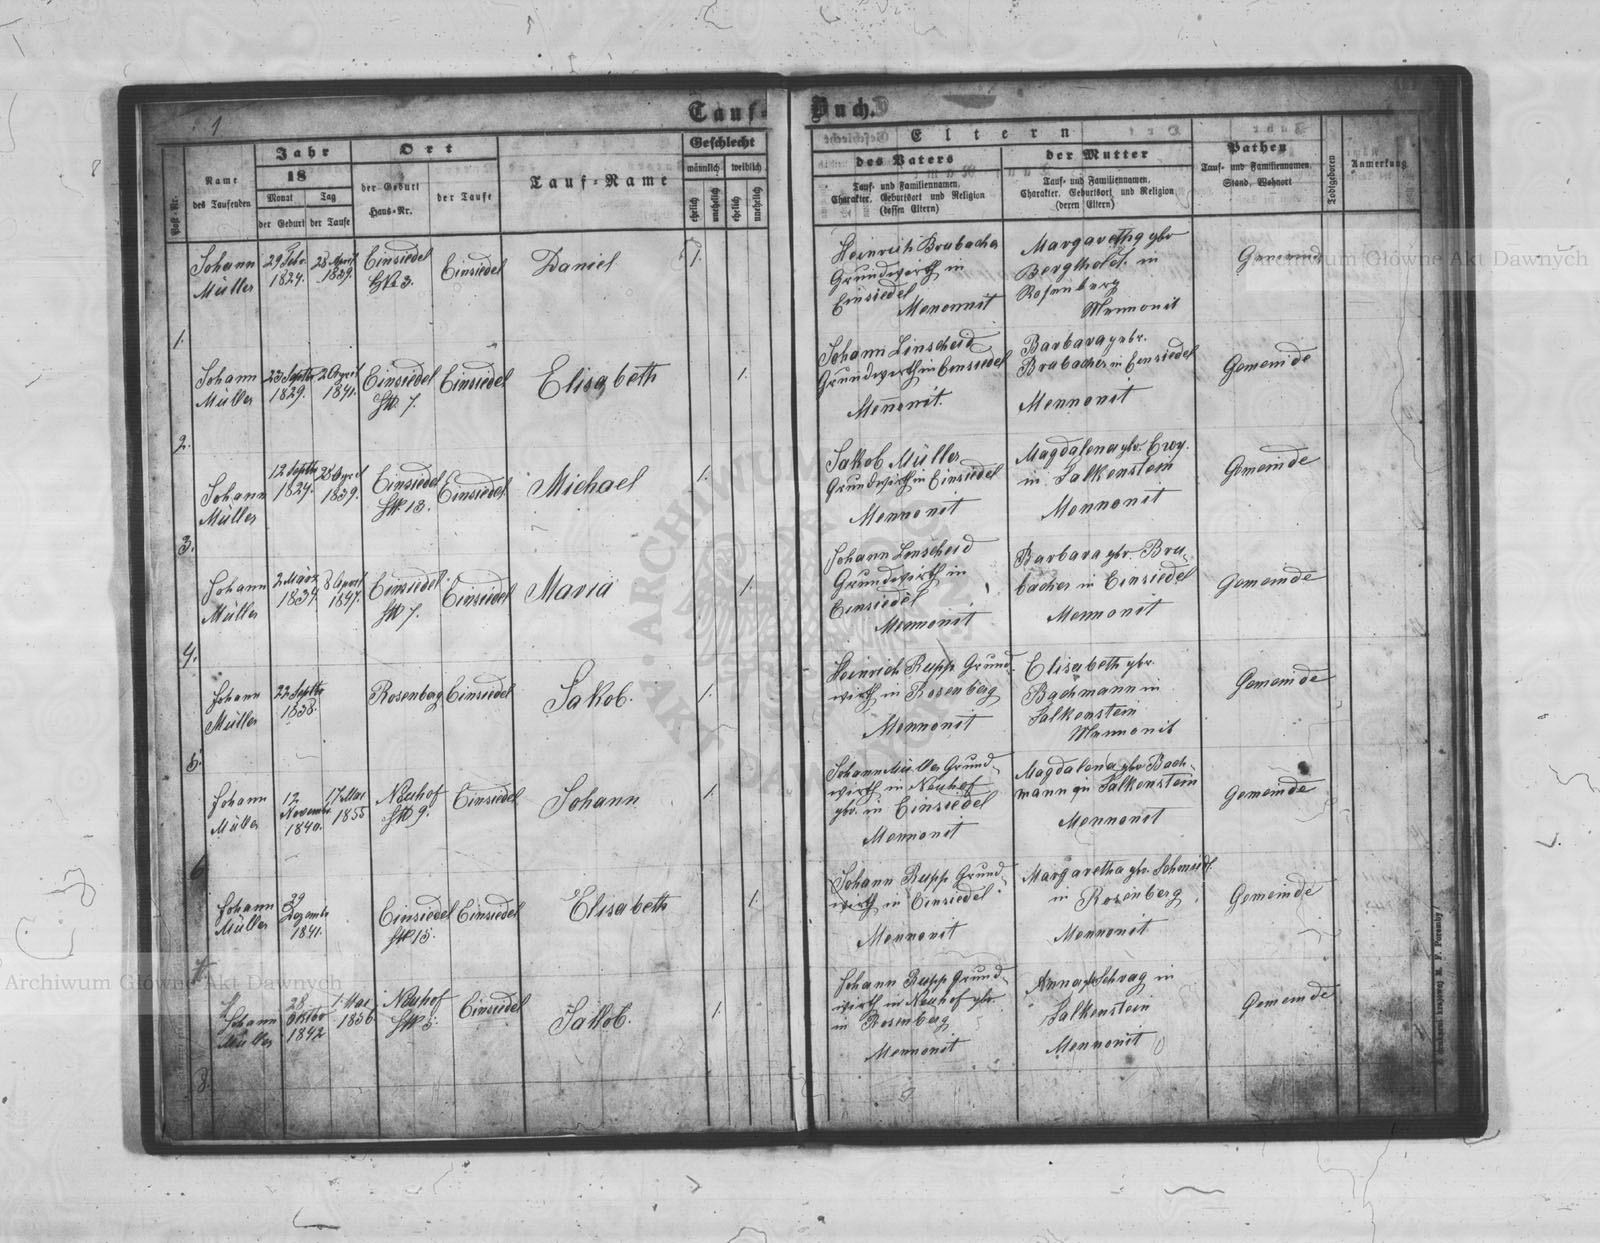 1
Tauf-Buch.
Post-Nr.
Name
des Taufenden
Jahr
18
Monat
Tag
der Geburt
der Taufe
Ort
der Geburt
Haus-Nr.
der Taufe
Tauf-Name
Geschlecht
männlich
weiblich
ehelich
unehelich
ehelich
unehelich
Eltern
des Vaters
Tauf- und Familiennamen,
Charakter, Geburtsort und Religion
(dessen Eltern)
der Mutter
Tauf- und Familiennamen,
Charakter, Geburtsort und Religion
(deren Eltern)
Pathen
Tauf- und Familiennamen,
Stand, Wohnort
Todtgeboren
Anmerkung
1.
Johann
Müller
29 Febr.
1824.
28 April
1839.
Einsiedel
3.
Einsiedel
Daniel
1.
Heinrich Brubacher
Grundwirth in
Einsiedel
Menonnit
Margaretha gbr
Bergthold. in
Rosenberg
Mennonit
2.
Johann
Müller
23 Septbr
1829.
2 April
1841.
Einsiedel
7.
Einsiedel
Elisabeth
1.
Johann Linscheid
Grundwirth in Einsiedel
Mennonit.
Barbara gebr.
Brubacher in Einsiedel
Mennonit
Gemeinde
3.
Johann
Müller
12 Septbr
1824.
28 April
1839.
Einsiedel
13.
Einsiedel
Michael
1.
Jakob Müller
Grundwirth in Einsiedel
Mennonit
Magdalena gbr.
in Falkenstein
Mennonit
Gemeinde
4.
Johann
Müller
2 März
1834.
8 April
1847.
Einsiedel
7.
Einsiedel
Maria
1.
Johann Linscheid
Grundwirth in
Einsiedel
Mennonit
Barbara gbr. Bru-
bacher in Einsiedel
Mennonit
Gemeinde
5.
Johann
Müller
22 Septbr
1838.
Rosenbag
Einsiedel
Jakob.
1.
Heinrich Rupp Grund-
wirth in Rosenberg
Mennonit
Elisabeth gbr.
Bachmann in
Falkenstein
Mennonit
Gemeinde
6
Johann
Müller
12
Novembr
1840.
17 Mai
1855
Neuhof
9.
Einsiedel
Johann
1.
Johann Müller Grund-
wirth in Neuhof
gbr. in Einsiedel
Mennonit
Magdalena gbr Bach-
mann in Falkenstein
Mennonit
Gemeinde
7.
Johann
Müller
29
Dezembr
1841.
Einsiedel
15.
Einsiedel
Elisabeth
1.
Johann Rupp Grund-
wirth in Einsiedel
Mennonit
Margaretha gbr. Schmidt.
in Rosenberg
Mennonit
Gemeinde
8.
Johann
Müller
28
Oktobr
1842
1. Mai
1856.
Neuhof
5.
Einsiedel
Jakob.
1.
Johann Rupp Grund-
wirth in Neuhof gbr.
in Rosenberg
Mennonit
Anna gbr Schrag in
Falkenstein
Mennonit
Gemeinde
Archiwum Główne Akt Dawnych
Archiwum Główne Akt Dawnych